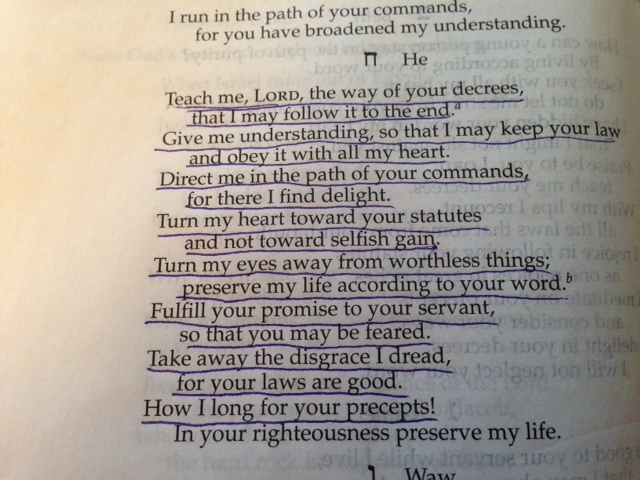 I run in the path of your commands,
for you have broadened my understanding.
ה He
Teach me, LORD, the way of your decrees,
that I may follow it to the end.a
Give me understanding, so that I may keep your law
and obey it with all my heart.
Direct me in the path of your commands,
for there I find delight.
Turn my heart toward your statutes
and not toward selfish gain.
Turn my eyes away from worthless things;
preserve my life according to your word.b
Fulfill your promise to your servant,
so that you may be feared.
Take away the disgrace I dread,
for your laws are good.
How I long for your precepts!
In your righteousness preserve my life.
ו Waw